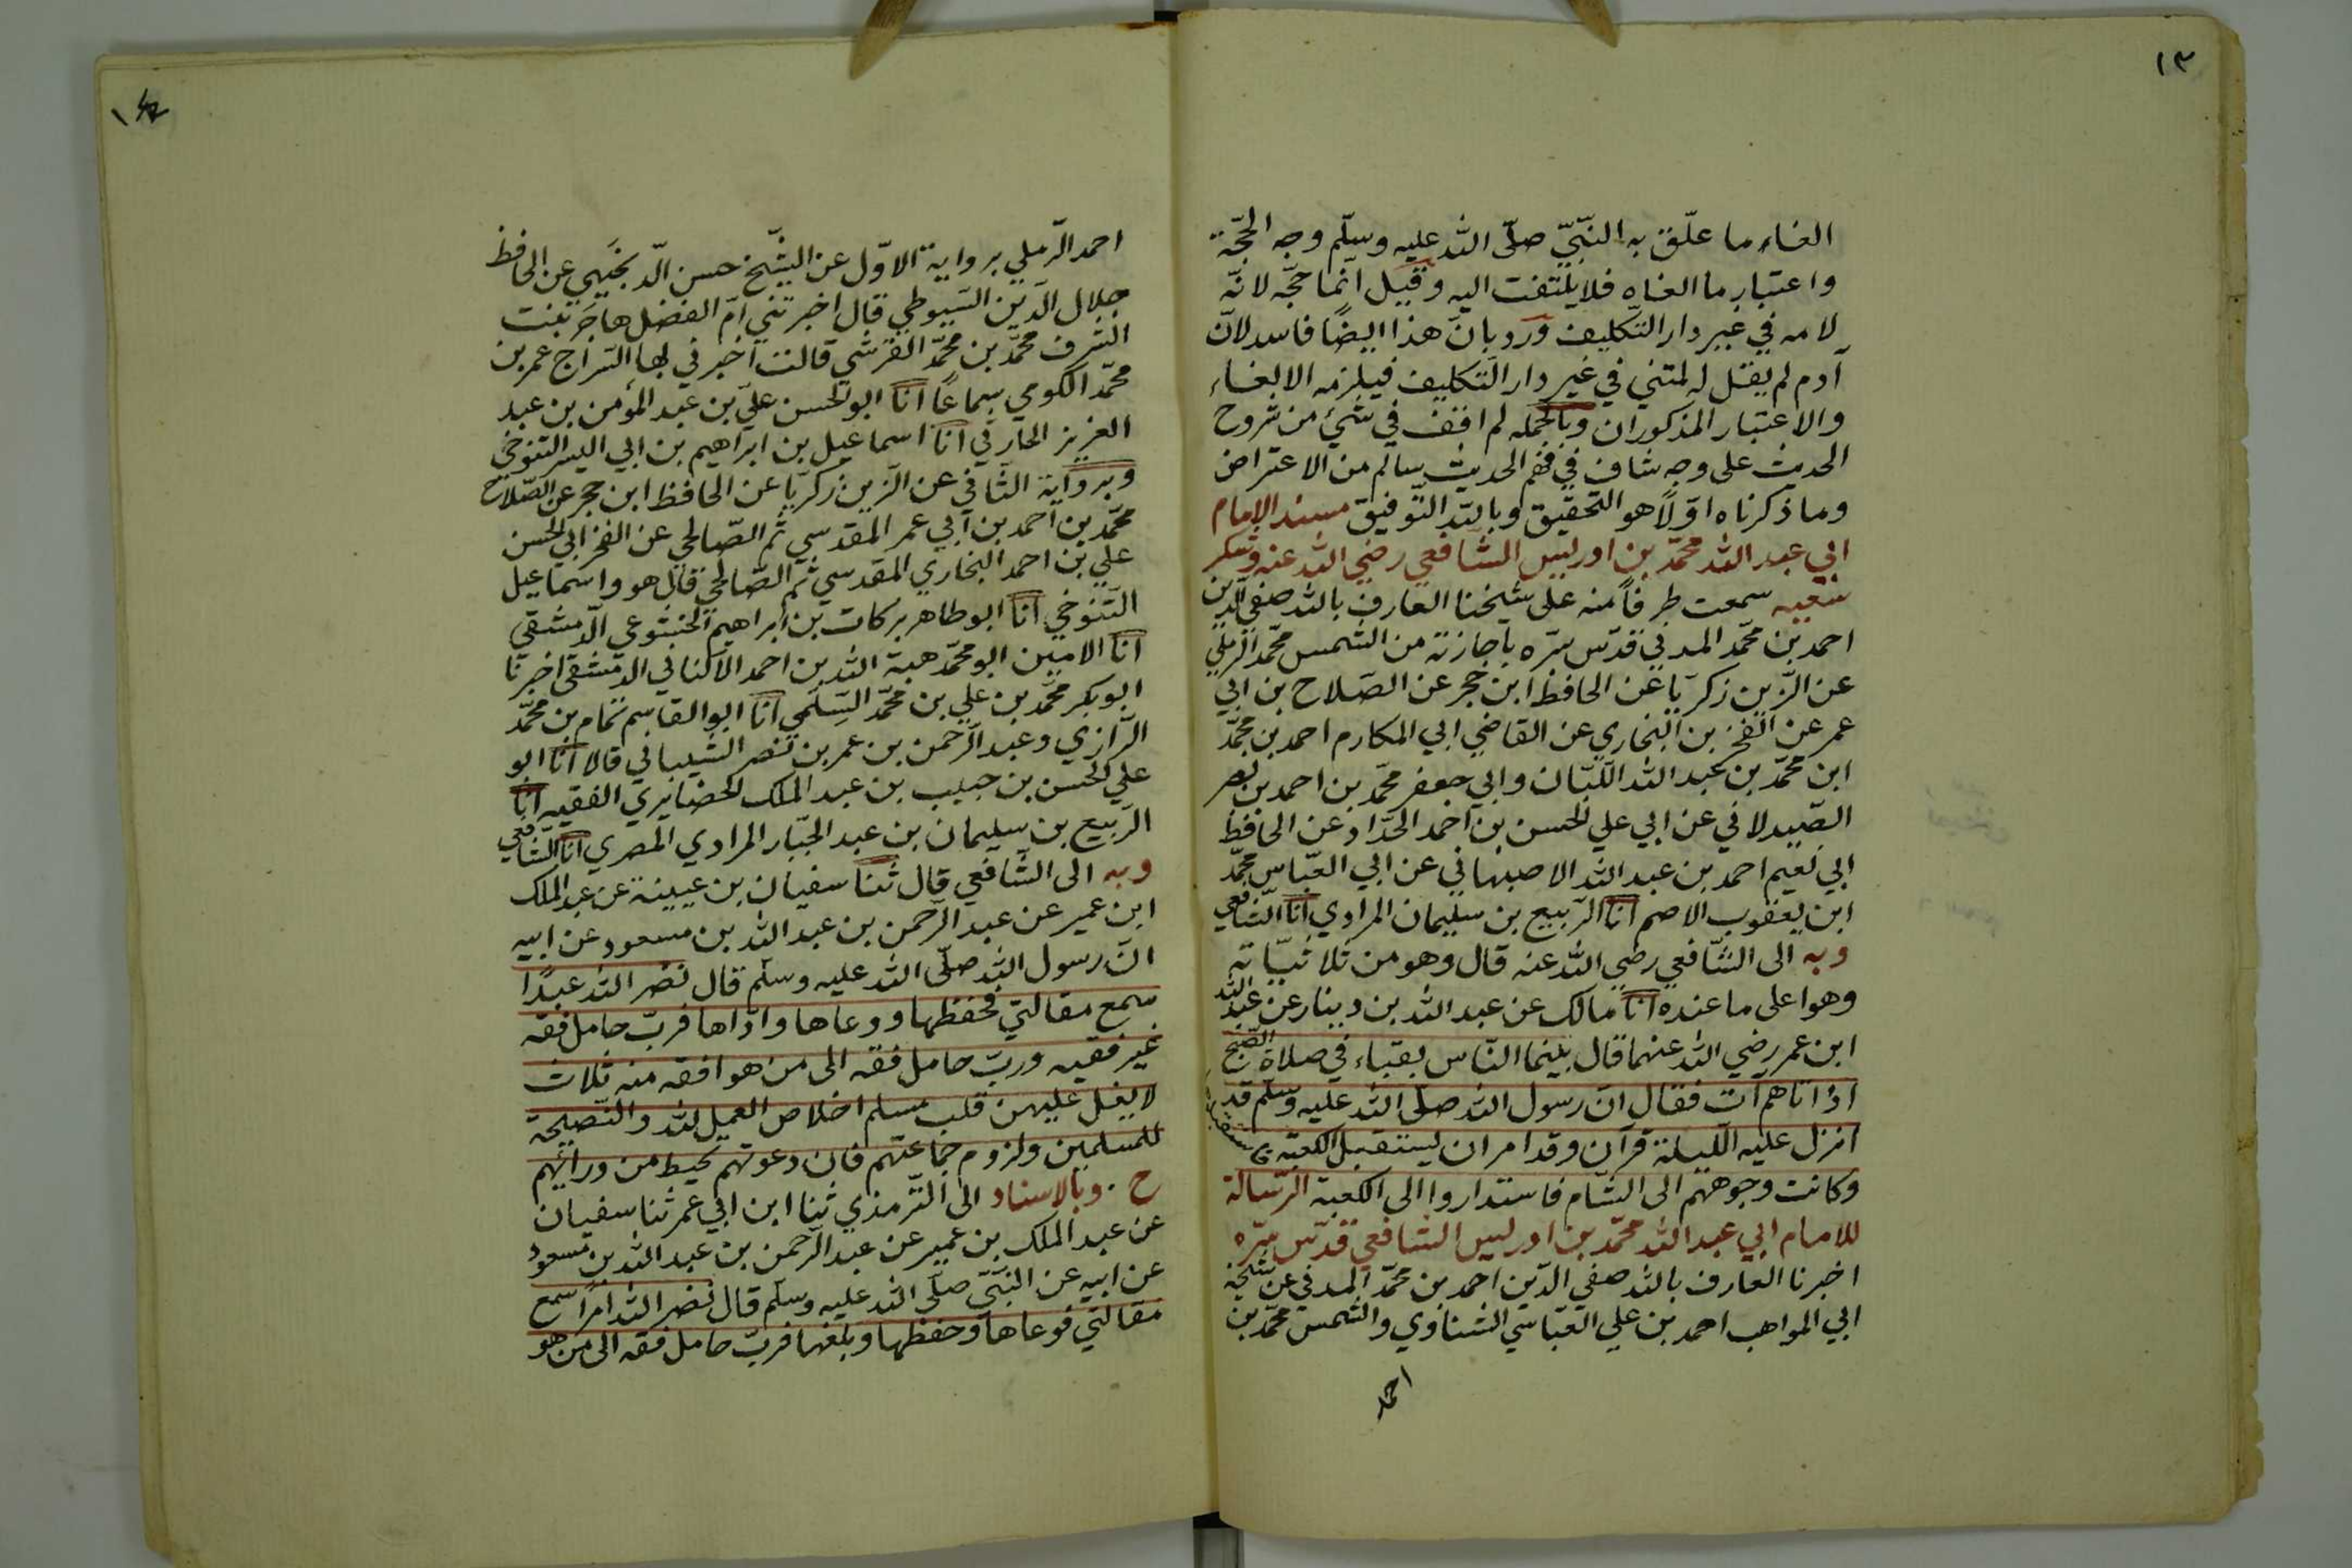 ١٣
الغاء ما علّق به النّبيّ صلّى الله عليه وسلّم وجه الحجّة
واعتبار ما الغاه فلا يلتفت اليه وقيل انّما حجّه لانّه
لامه في غير دار التّكليف وردّ بانّ هذا ايضًا فاسد لانّ
آدم لم يقل له لمتني في غير دار التّكليف فيلزمه الالغاء
والاعتبار المذكوران وبالجملة لم اقف في شئ من شروح
الحديث على وجه شاف في فهم الحديث سالم من الاعتراض
وما ذكرناه اوّلاً هو التّحقيق وبالله التّوفيق مسند الإمام
ابي عبد الله محمّد بن ادريس الشّافعي رضي الله عنه وشكر
سعيه سمعت طرفًا منه على شيخنا العارف بالله صفيّ الدّين
احمد بن محمّد المدني قدّس سرّه باجازته من الشّمس محمّد الرّملي
عن الزّين زكريّا عن الحافظ ابن حجر عن الصّلاح بن ابي
عمر عن الفخر بن البخاري عن القاضي ابي المكارم احمد بن محمّد
ابن محمّد بن عبد الله اللّبّان وابي جعفر محمّد بن احمد بن نصر
الصّيدلاني عن ابي علي الحسن بن احمد الحدّاد عن الحافظ
ابي نعيم احمد بن عبد الله الاصبهاني عن ابي العبّاس محمّد
ابن يعقوب الاصم انا الرّبيع بن سليمان المرادي انا الشّافعي
وبه الى الشّافعي رضي الله عنه قال وهو من ثلاثيّاته
وهو اعلى ما عنده انا مالك عن عبد الله بن دينار عن عبد الله
ابن عمر رضي الله عنهما قال بينما النّاس بقباء في صلاة الصّبح
اذ اتاهم آت فقال انّ رسول الله صلّى الله عليه وسلّم قد
انزل عليه اللّيلة قرآن وقد امر ان يستقبل الكعبة
وكانت وجوههم الى الشّام فاستداروا الى الكعبة الرّسالة
للامام ابي عبد الله محمّد بن ادريس الشّافعي قدّس سرّه
اخبرنا العارف بالله صفي الدّين احمد بن محمّد المدني عن شيخه
ابي المواهب احمد بن علي العبّاسي الشنّاوي والشّمس محمّد بن
احمد
١٤
احمد الرّملي برواية الاوّل عن الشّيخ حسن الدّنجيهي عن الحافظ
جلال الدّين السّيوطي قال اخبرتني امّ الفضل هاجر بنت
الشّرف محمّد بن محمّد القرشي قالت اخبرني بها السّراج عمر بن
محمّد الكومي سماعًا انا ابو الحسن علي بن عبد المؤمن بن عبد
العزيز الحارثي انا اسماعيل بن ابراهيم بن ابي اليسر التنوخي
وبرواية الثّاني عن الزّين زكريّا عن الحافظ ابن حجر عن الصّلاح
محمّد بن احمد بن ابي عمر المقدسي ثمّ الصّالحي عن الفخر ابي الحسن
علي بن احمد البخاري المقدسي ثمّ الصّالحي قال هو واسماعيل
التّنوخي انا ابو طاهر بركات بن ابراهيم الخشوعي الدّمشقي
انا الامين ابو محمّد هبة الله بن احمد الاكفاني الدّمشقي اخبرنا
ابو بكر محمّد بن علي بن محمّد السّلمي انا ابو القاسم تمّام بن محمّد
الرّازي وعبد الرّحمن بن عمر بن نصر الشّيباني قالا انا ابو
علي الحسن بن حبيب بن عبد الملك الحضايري الفقيه انا
الرّبيع بن سليمان بن عبد الجبّار المرادي المصري انا الشّافعي
وبه الى الشّافعي قال ثنا سفيان بن عيينة عن عبد الملك
ابن عمير عن عبد الرّحمن بن عبد الله بن مسعود عن ابيه
انّ رسول الله صلّى الله عليه وسلّم قال نضر الله عبدًا
سمع مقالتي فحفظها ووعاها وادّاها فربّ حامل فقه
غير فقيه وربّ حامل فقه الى من هو افقه منه ثلاث
لا يغل عليهن قلب مسلم اخلاص العمل لله والنّصيحة
للمسلمين ولزوم جماعتهم فان دعوتهم تحيط من ورائهم
ح . وبالاسناد الى التّرمذي ثنا ابن ابي عمر ثنا سفيان
عن عبد الملك بن عمير عن عبد الرّحمن بن عبد الله بن مسعود
عن ابيه عن النّبيّ صلّى الله عليه وسلّم قال نضر الله امرأ سمع
مقالتي فوعاها وحفظها وبلغها فربّ حامل فقه الى من هو